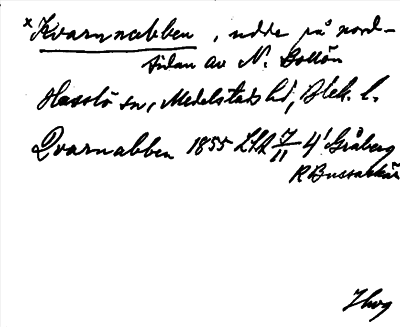 x Kvarnnabben, udde på nord-
sidan av N. Bollön
Hasslö sn, Medelstads hd, Blek. l.
Qvarnabben 1855 LSA 7/11 4! Gråberg
R Bussabåk
Ihog